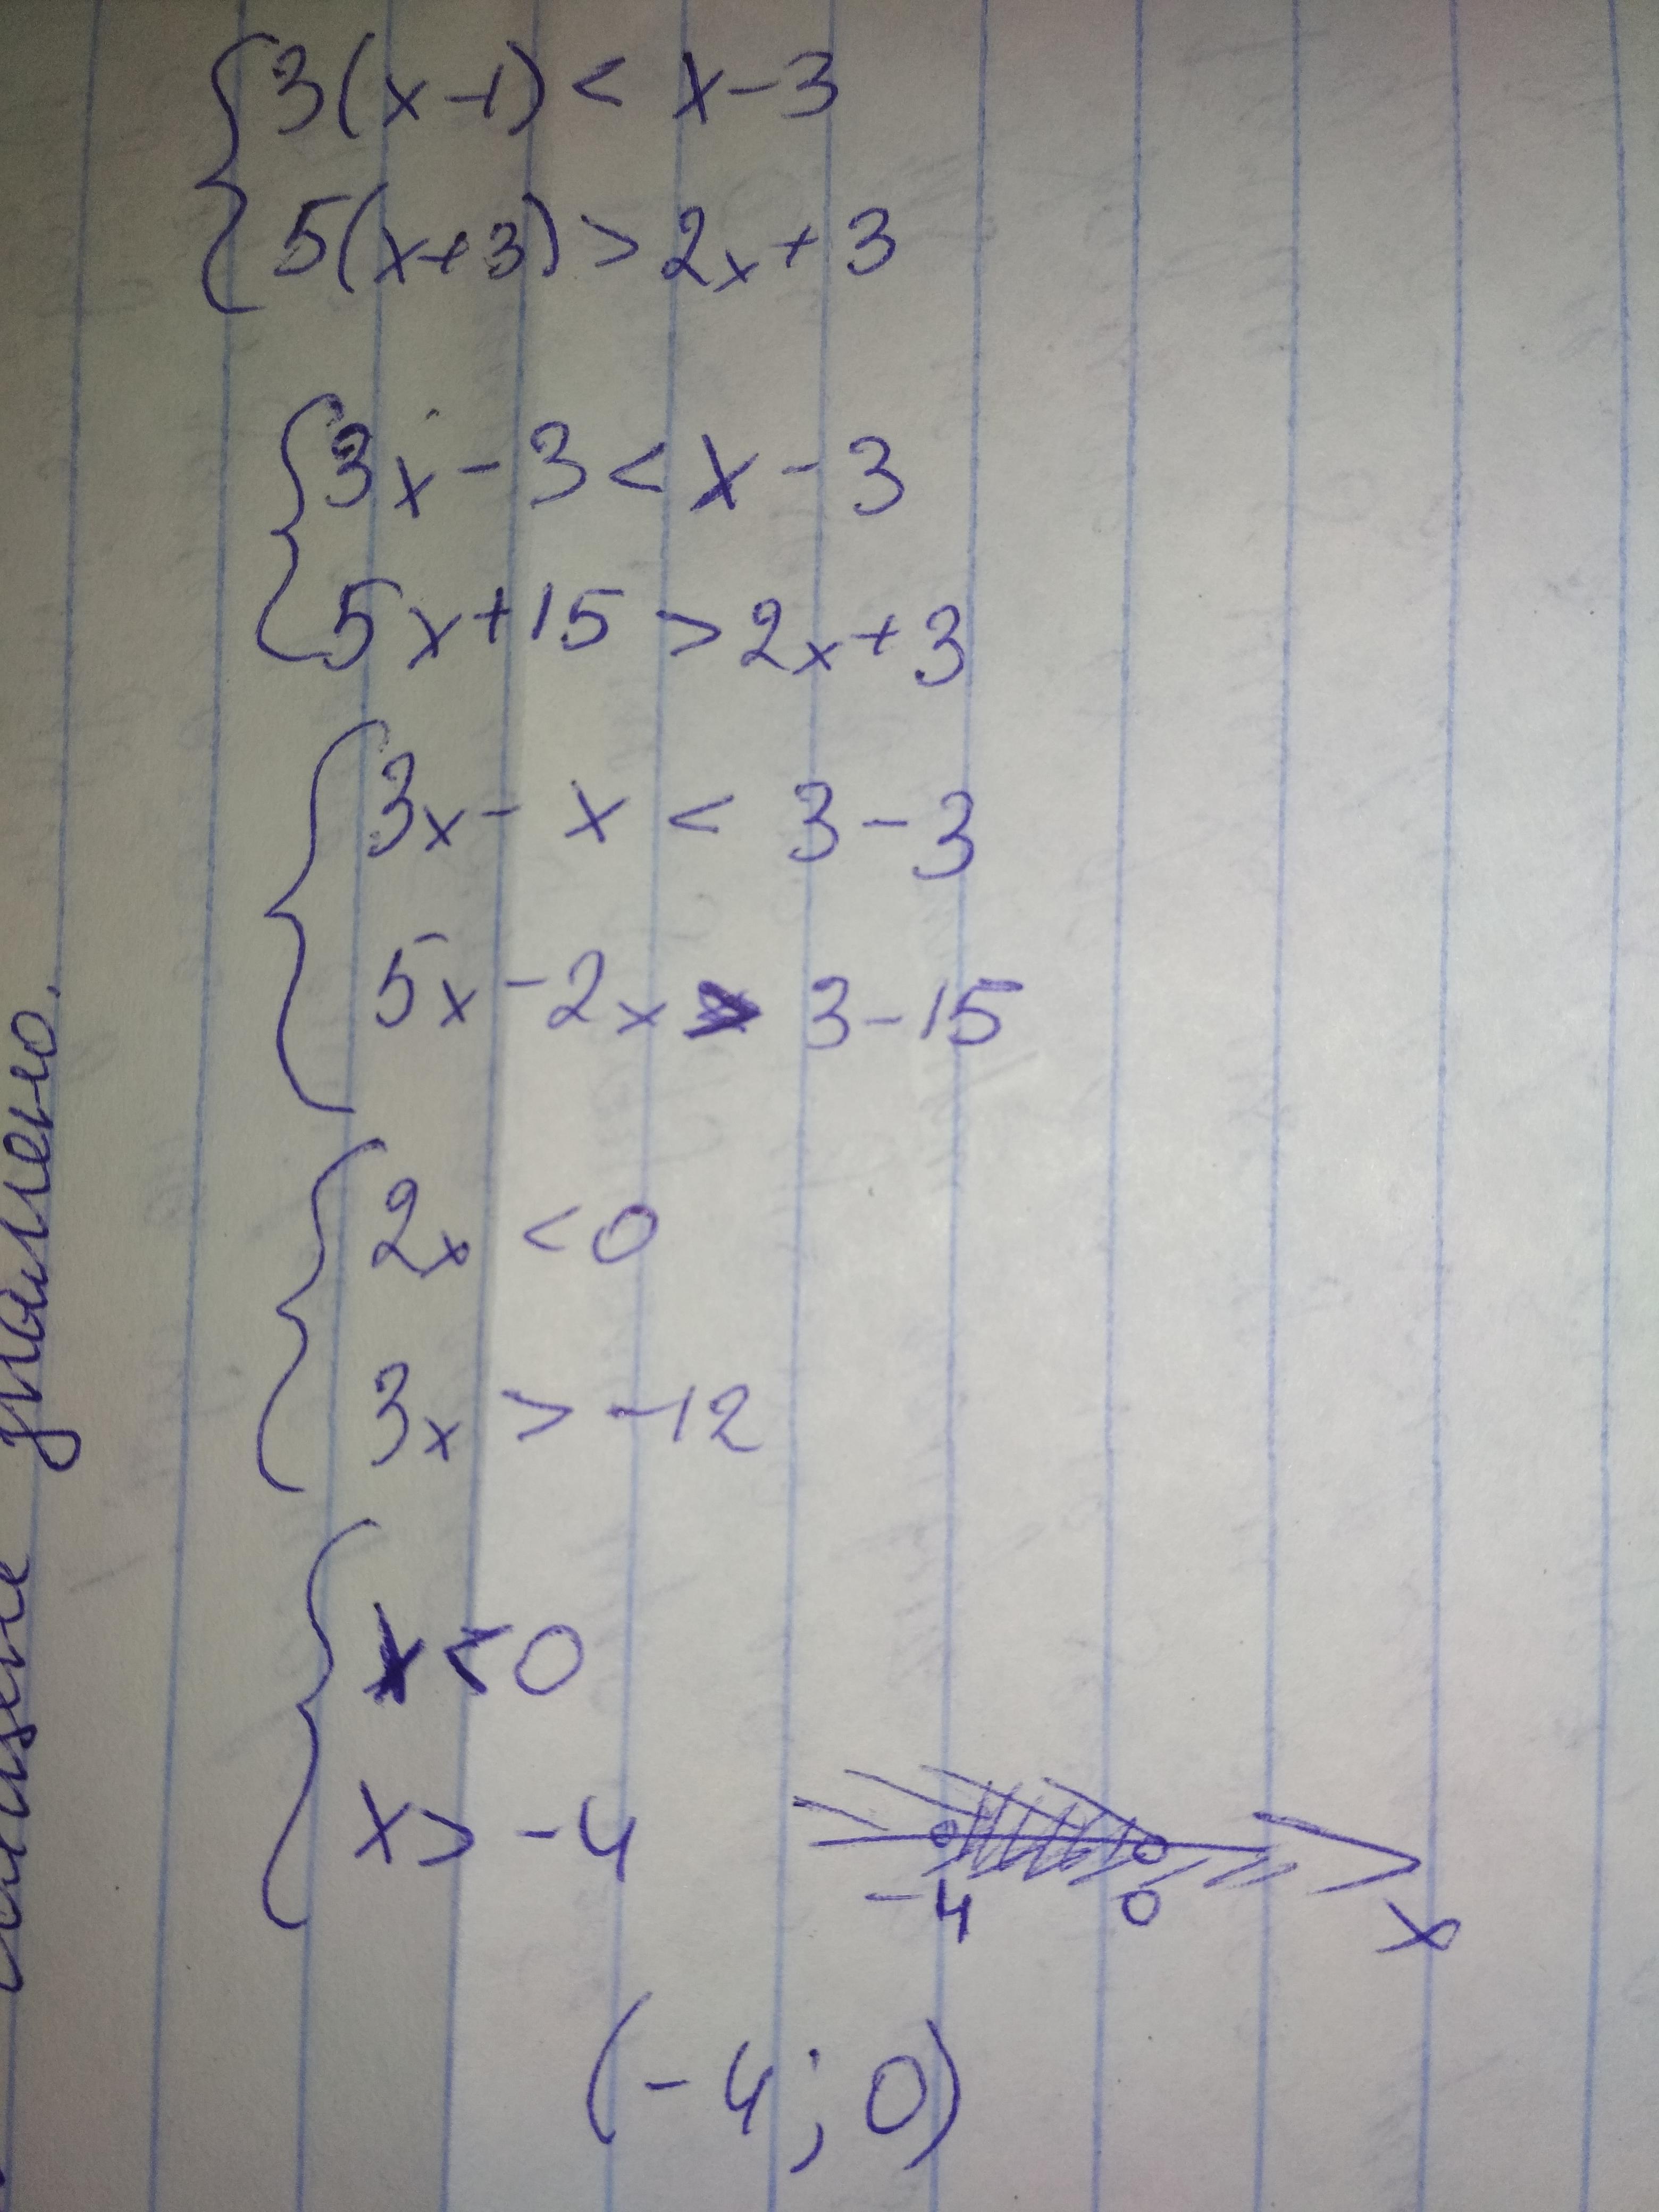 3(x-1) < x-3
5(x+3) > 2x+3
3x-3 < x-3
5x+15 > 2x+3
3x- x < 3-3
5x-2x > 3-15
2x < 0
3x > -12
x < 0
x > -4
-4 0 x
(-4; 0)